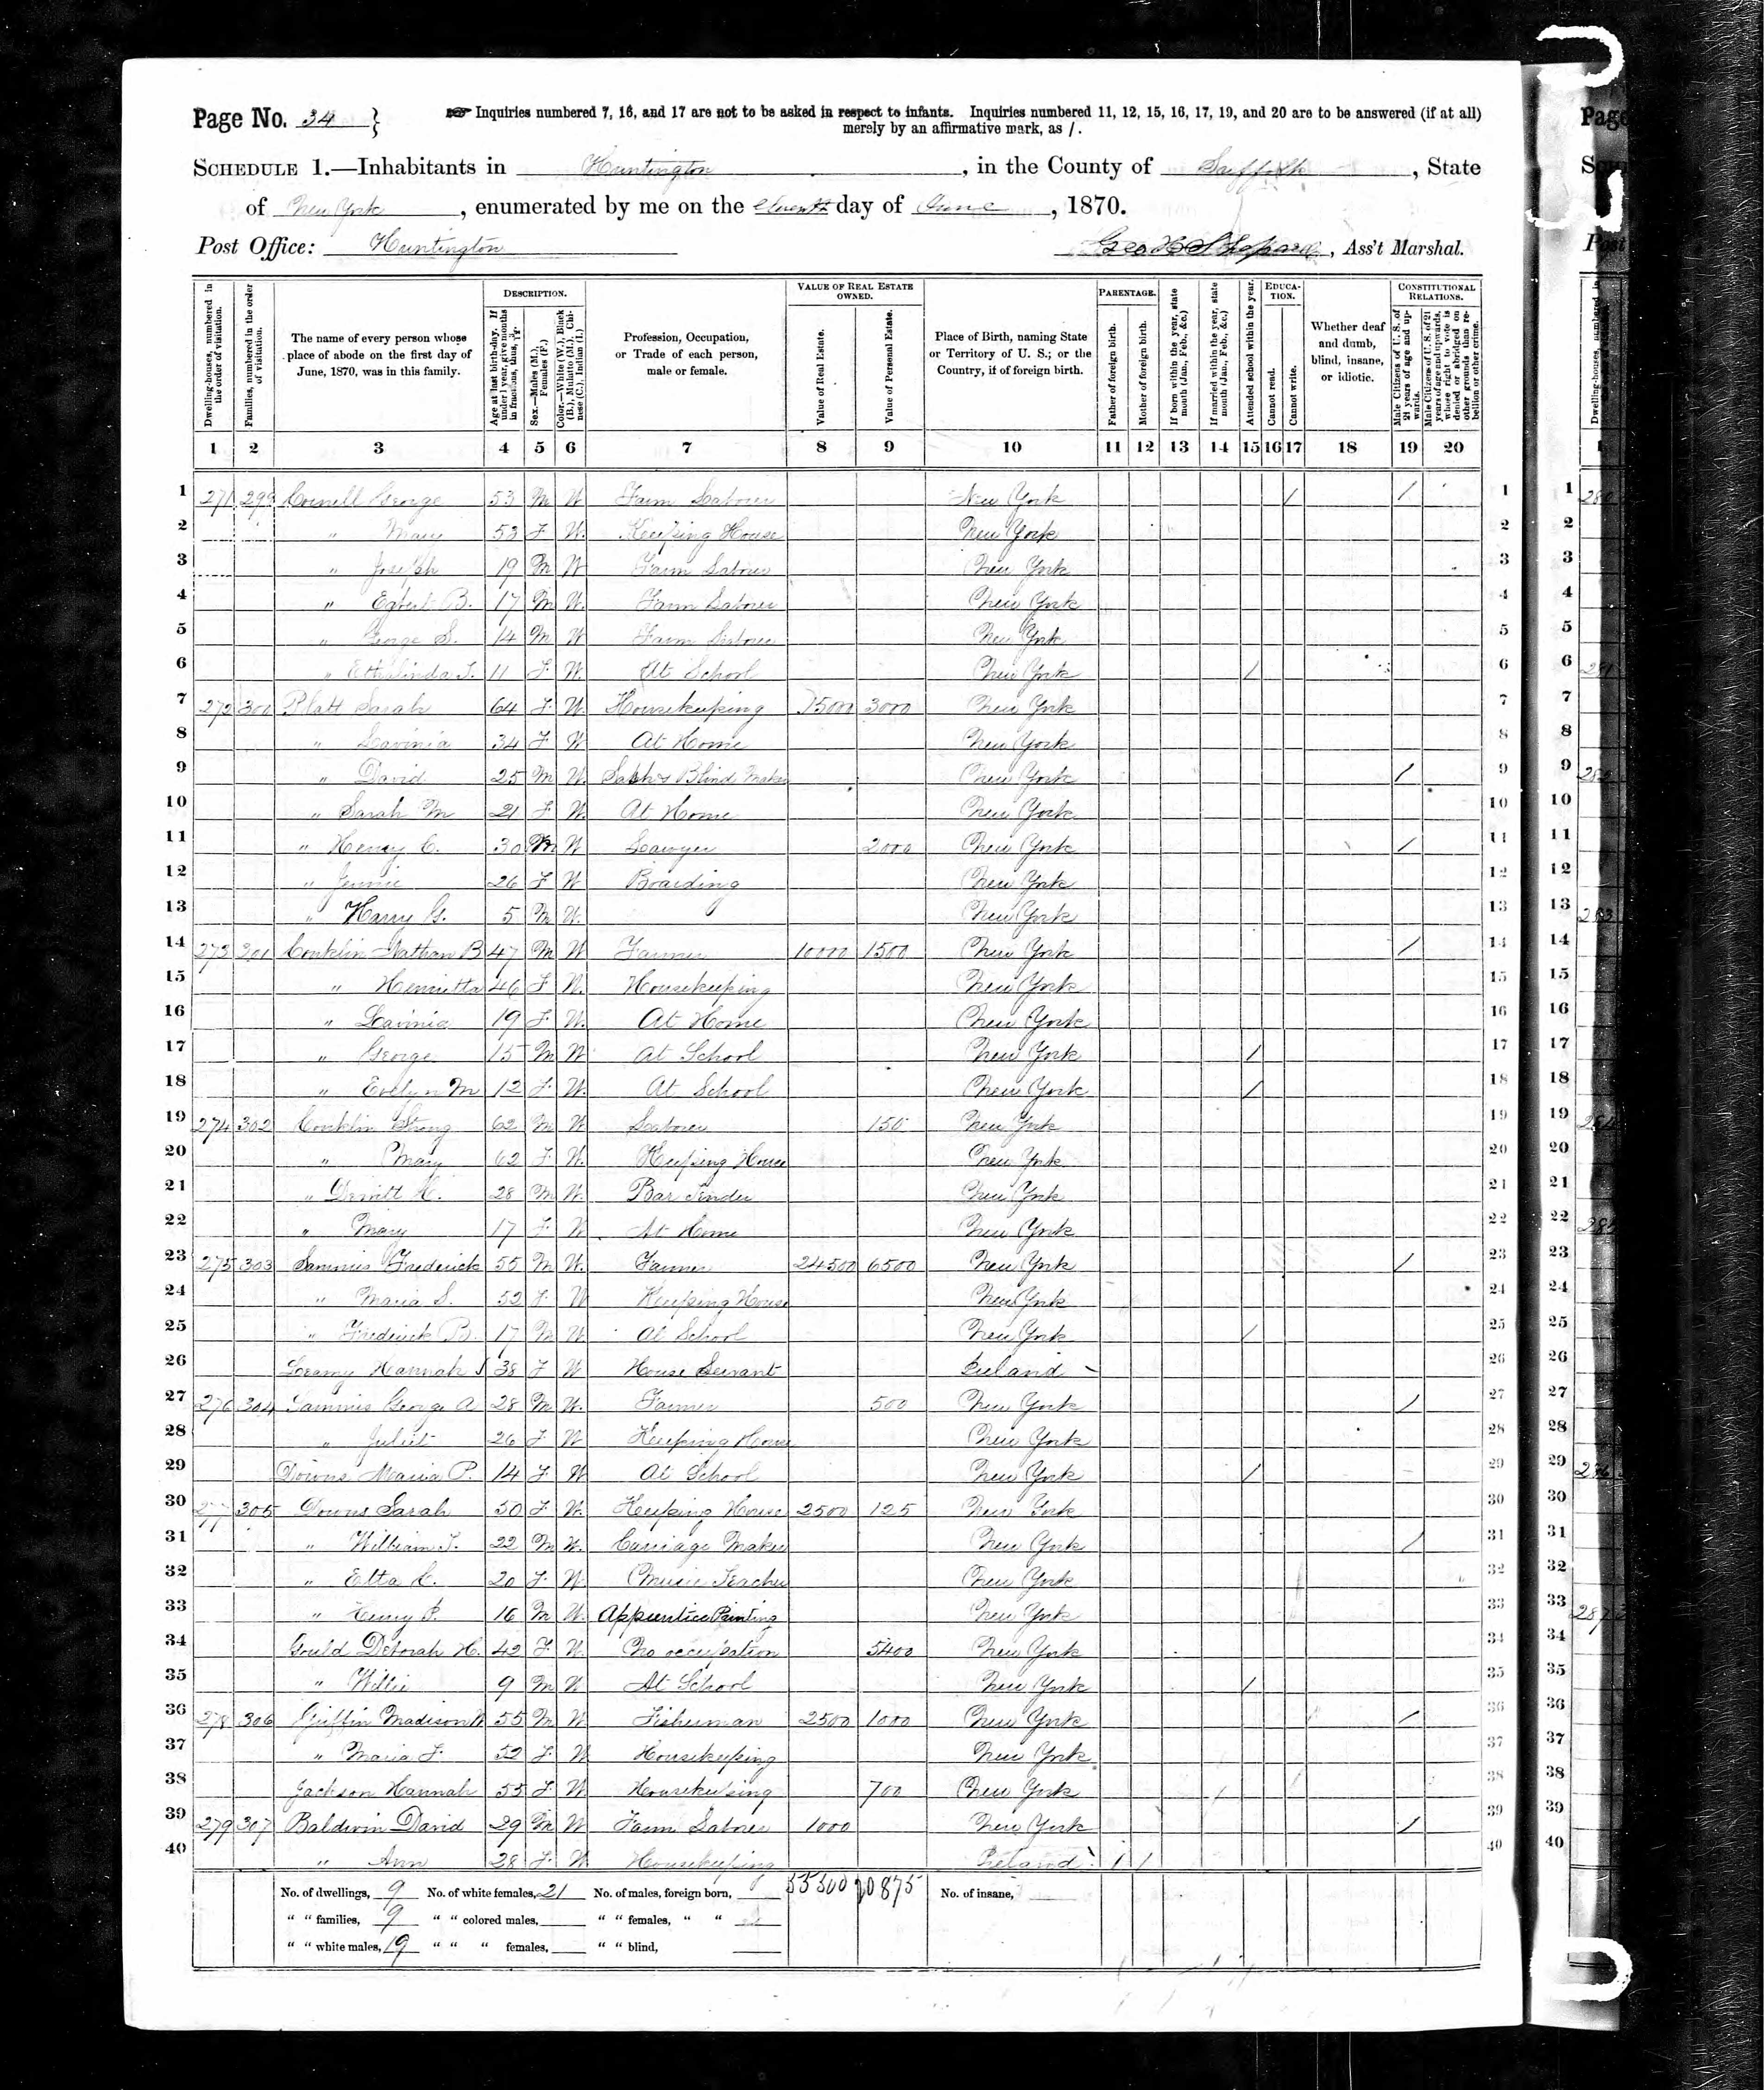 Page No. 34 } ☞ Inquiries numbered 7, 16, and 17 are not to be asked in respect to infants. Inquiries numbered 11, 12, 15, 16, 17, 19, and 20 are to be answered (if at all)
merely by an affirmative mark, as /.
SCHEDULE 1.—Inhabitants in Huntington, in the County of Suffolk, State
of New York, enumerated by me on the eleventh day of June, 1870.
Post Office: Huntington Geo H Shepard, Ass't Marshal.
Dwelling-houses, numbered in the order of visitation.
Families, numbered in the order of visitation.
The name of every person whose place of abode on the first day of June, 1870, was in this family.
DESCRIPTION.
Age at last birth-day. If under 1 year, give months in fractions, thus, 3/12.
Sex.—Males (M.), Females (F.)
Color.—White (W.), Black (B.), Mulatto (M.), Chinese (C.), Indian (I.)
Profession, Occupation, or Trade of each person, male or female.
VALUE OF REAL ESTATE OWNED.
Value of Real Estate.
Value of Personal Estate.
Place of Birth, naming State or Territory of U. S.; or the Country, if of foreign birth.
PARENTAGE.
Father of foreign birth.
Mother of foreign birth.
If born within the year, state month (Jan., Feb., &c.)
If married within the year, state month (Jan., Feb., &c.)
Attended school within the year.
EDUCATION.
Cannot read.
Cannot write.
Whether deaf and dumb, blind, insane, or idiotic.
CONSTITUTIONAL RELATIONS.
Male Citizens of U. S. of 21 years of age and upwards.
Male Citizens of U. S. of 21 years of age and upwards, whose right to vote is denied or abridged on other grounds than rebellion or other crime.
1 2 3 4 5 6 7 8 9 10 11 12 13 14 15 16 17 18 19 20
1 271 299 Cornell George 53 M W Farm Laborer New York / / 1
2 " Mary 53 F W. Keeping House New York 2
3 " Joseph 19 M W Farm Laborer New York 3
4 " Egbert B. 17 M W. Farm Laborer New York 4
5 " George S. 14 M W Farm Laborer New York 5
6 " Ethelinda 11 F. W. At School New York / 6
7 272 300 Platt Sarah 64 F. W. Housekeeping 15000 3000 New York 7
8 " Lavinia 34 F W At Home New York 8
9 " David 25 M W. Sash & Blind Maker New York / 9
10 " Sarah M 21 F W. At Home New York 10
11 " Henry C. 30 M W Lawyer 2000 New York / 11
12 " Jennie 26 F W Boarding New York 12
13 " Harry G. 5 M W. New York 13
14 273 301 Conklin Nathan B 47 M W Farmer 10000 1500 New York / 14
15 " Henrietta 46 F W. Housekeeping New York 15
16 " Lavinia 19 F. W. At Home New York 16
17 " George 15 M W At School New York / 17
18 " Evelyn M 12 F. W. At School New York / 18
19 274 302 Conklin Strong 62 M W Laborer 150 New York 19
20 " Mary 62 F W. Keeping House New York 20
21 " Dewitt 28 M W. Bar Tender New York 21
22 " Mary 17 F W At Home New York 22
23 275 303 Sammis Frederick 55 M W. Farmer 24500 6500 New York / 23
24 " Maria S. 52 F W Keeping House New York 24
25 " Frederick B. 17 M W At School New York / 25
26 Hannah 38 F W House Servant Ireland 26
27 276 304 Sammis George A 28 M W. Farmer 500 New York / 27
28 " Juliet 26 F W Keeping House New York 28
29 Downs Maria P. 14 F W At School New York / 29
30 277 305 Downs Sarah 50 F W. Keeping House 2500 125 New York 30
31 " William 22 M W. Carriage Maker New York / 31
32 " Etta 20 F. W. Music Teacher New York 32
33 " Henry P. 16 M W. Apprentice Painting New York 33
34 Gould Deborah H. 42 F. W. No occupation 5400 New York 34
35 " Willie 9 M W. At School New York / 35
36 278 306 Griffin Madison 55 M W Fisherman 2500 1000 New York / 36
37 " Maria F. 52 F. W Housekeeping New York 37
38 Jackson Hannah 55 F. W Housekeeping 700 New York 38
39 279 307 Baldwin David 29 M W Farm Laborer 1000 New York / 39
40 " Ann 28 F. W Housekeeping Ireland / / 40
No. of dwellings, 9 No. of white females, 21 No. of males, foreign born, 55500 20875 No. of insane,
" " families, 9 " " colored males, " " females, " "
" " white males, 19 " " " females, " " blind,